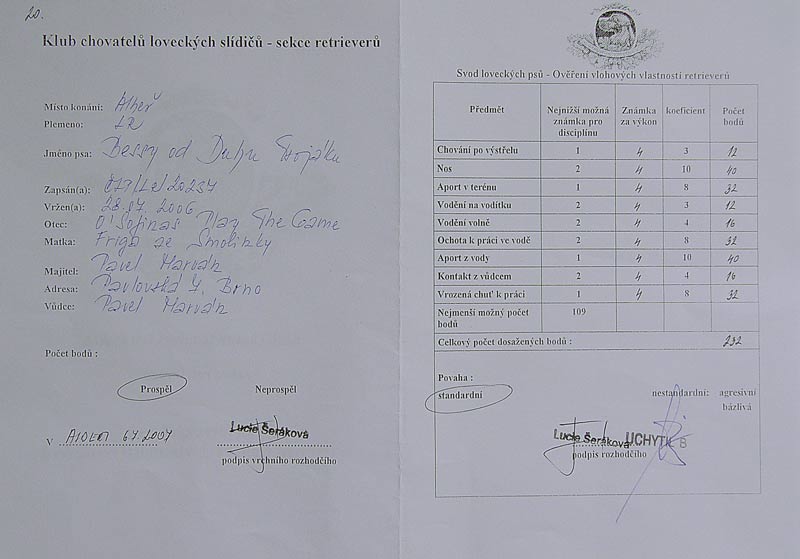 20.
Klub chovatelů loveckých slídičů - sekce retrieverů
Místo konání:
Plemeno: LR
Jméno psa: Bessy od Duhu
Zapsán(a):
Vržen(a): 2006
Otec: O'Sofinas Play The Game
Matka: Friga ze Smolinky
Majitel: Pavel Marván
Adresa: Pavlovská 4, Brno
Vůdce: Pavel Marván
Počet bodů :
Prospěl Neprospěl
V
Lucie Šeráková
podpis vrchního rozhodčího
Svod loveckých psů - Ověření vlohových vlastností retrieverů
Předmět Nejnižší možná známka pro disciplínu Známka za výkon koeficient Počet bodů
Chování po výstřelu 1 4 3 12
Nos 2 4 10 40
Aport v terénu 1 4 8 32
Vodění na vodítku 2 4 3 12
Vodění volně 2 4 4 16
Ochota k práci ve vodě 2 4 8 32
Aport z vody 1 4 10 40
Kontakt z vůdcem 2 4 4 16
Vrozená chuť k práci 1 4 8 32
Nejmenší možný počet bodů 109
Celkový počet dosažených bodů : 232
Povaha :
standardní nestandardní: agresivní
bázlivá
Lucie Šeráková UCHYTIL B
podpis rozhodčího